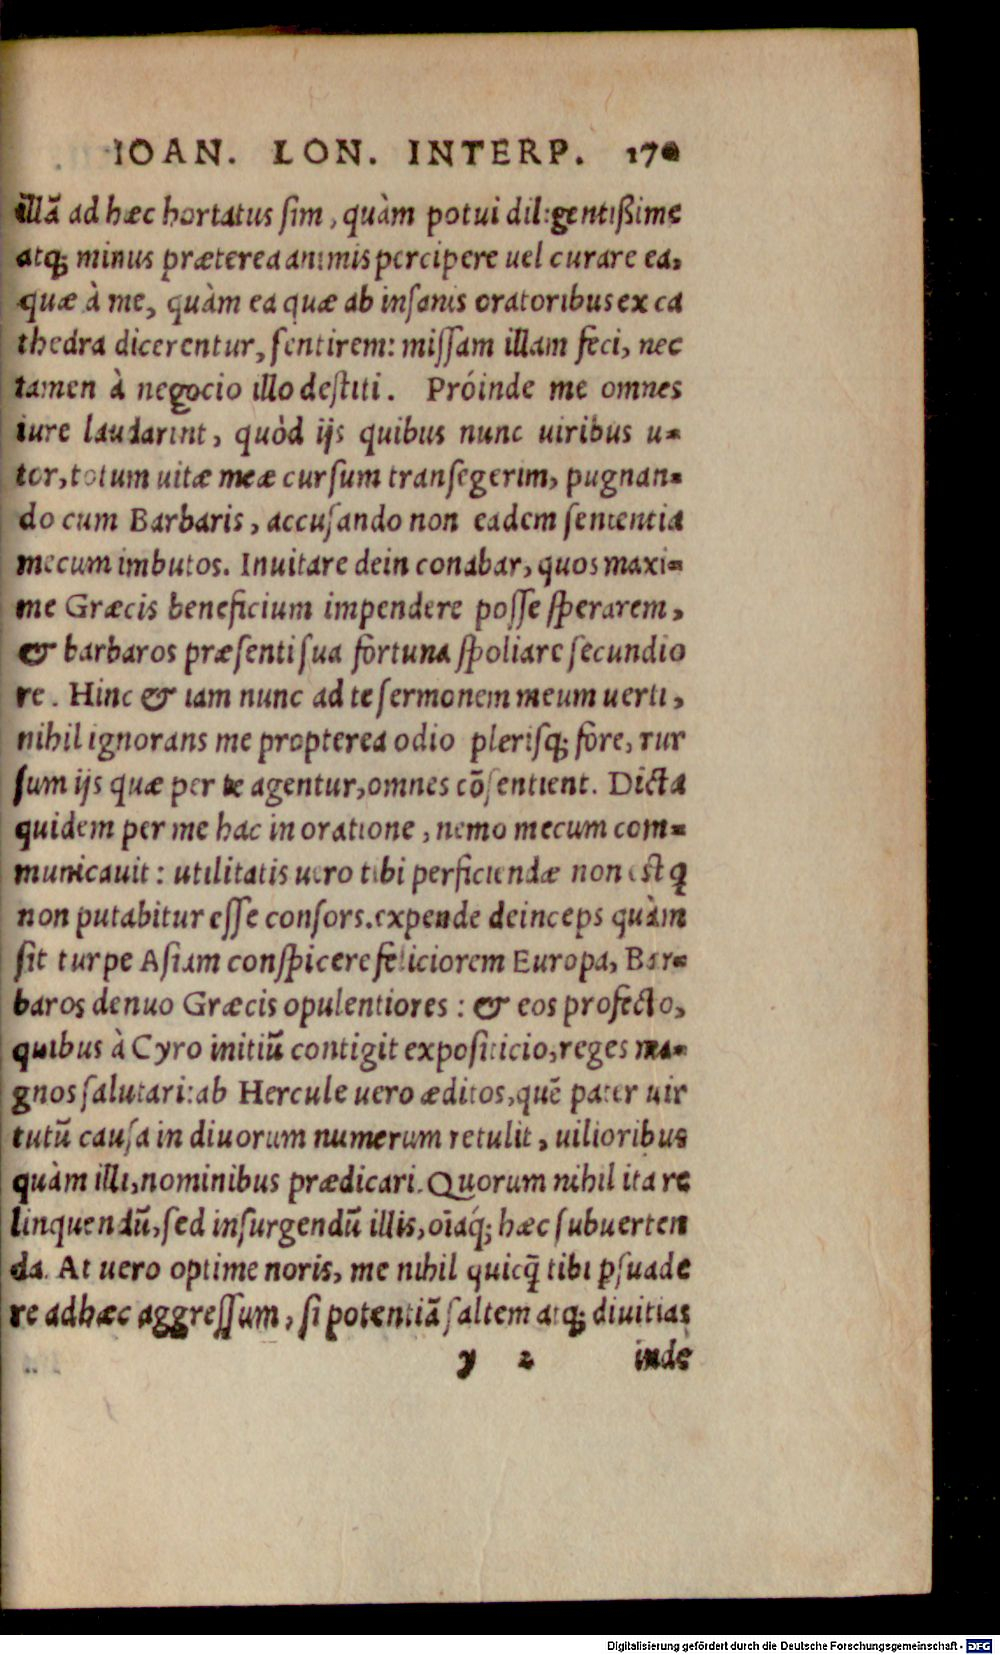 IOAN. LON. INTERP. 170
illā ad hæc hortatus ſim, quàm potui diligentißime
atq; minus præterea animis percipere uel curare ea,
quæ à me, quàm ea quæ ab inſanis oratoribus ex ca
thedra dicerentur, ſentirem: miſſam illam feci, nec
tamen à negocio illo deſtiti. Próinde me omnes
iure laudarint, quòd ijs quibus nunc uiribus u-
tor, totum uitæ meæ curſum tranſegerim, pugnan-
do cum Barbaris, accuſando non eadem ſententia
mecum imbutos. Inuitare dein conabar, quos maxi-
me Græcis beneficium impendere poſſe ſperarem,
& barbaros præſenti ſua fortuna ſpoliare ſecundio
re. Hinc & iam nunc ad te ſermonem meum uerti,
nihil ignorans me propterea odio pleriſq; fore, rur
ſum ijs quæ per te agentur, omnes cōſentient. Dicta
quidem per me hac in oratione, nemo mecum com-
municauit: utilitatis uero tibi perficiendæ non eſt q̄
non putabitur eſſe conſors. expende deinceps quàm
ſit turpe Aſiam conſpicere feliciorem Europa, Bar-
baros denuo Græcis opulentiores: & eos profecto,
quibus à Cyro initiū contigit expoſiticio, reges ma-
gnos ſalutari: ab Hercule uero æditos, quē pater uir
tutū cauſa in diuorum numerum retulit, uilioribus
quàm illi, nominibus prædicari. Quorum nihil ita re
linquendū, ſed inſurgendū illis, oīaq́; hæc ſubuerten
da. At uero optime noris, me nihil quicq̄ tibi ꝑſuade
re ad hæc aggreſſum, ſi potentiā ſaltem atq; diuitias
y 2 inde
Digitalisierung gefördert durch die Deutsche Forschungsgemeinschaft - DFG